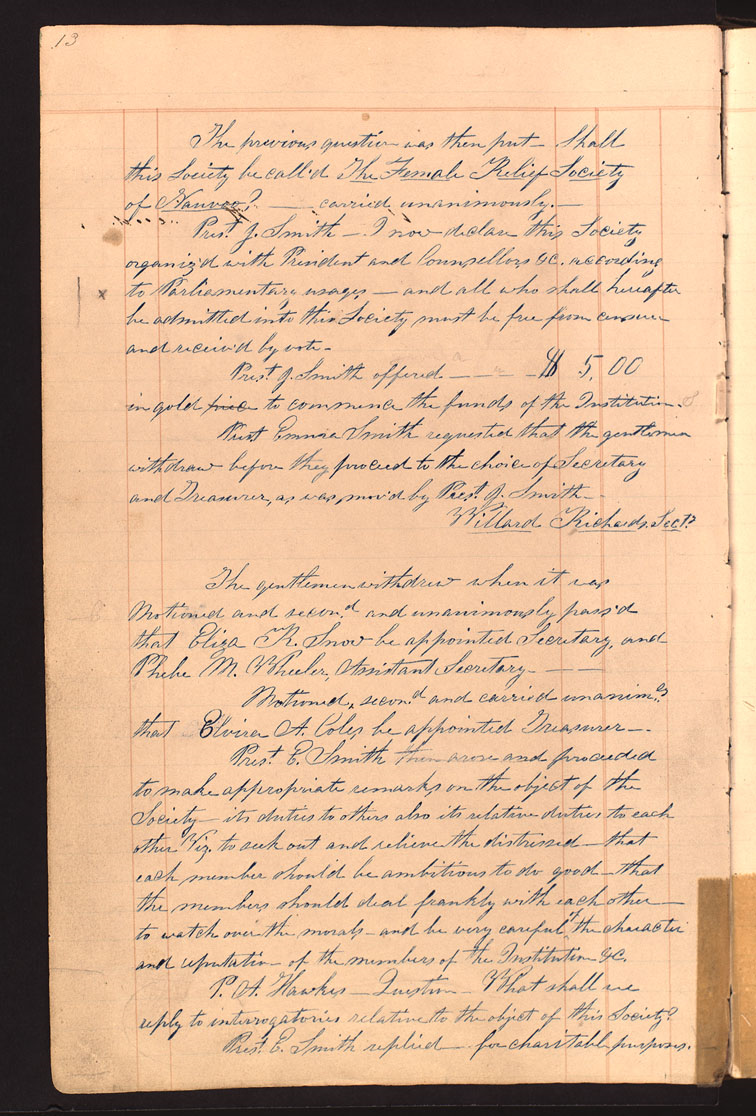 13
The previous question was then put — Shall
this Society be call'd The Female Relief Society
of Nauvoo? — carried unanimously. —
Prest. J. Smith — I now declare this Society
organiz'd with President and Counsellors &c. according
to Parliamentary usages — and all who shall hereafter
be admitted into this Society must be free from censure
and receiv'd by vote —
Prest. J. Smith offered — — — $ 5,00
in gold piece to commence the funds of the Institution.
Prest Emma Smith requested that the gentlemen
withdraw before they proceed to the choice of Secretary
and Treasurer, as was mov'd by Prest. J. Smith —
Willard Richards, Secty.
The gentlemen withdrew when it was
Motioned and second and unanimously pass'd
that Eliza R. Snow be appointed Secretary, and
Phebe M. Wheeler, Assistant Secretary — —
Motioned, second and carried unanim.ly
that Elvira A. Coles be appointed Treasurer —.
Prest. E. Smith then arose and proceeded
to make appropriate remarks on the object of the
Society — its duties to others also its relative duties to each
other Viz. to seek out and relieve the distressed — that
each member should be ambitious to do good — that
the members should deal frankly with each other —
to watch over the morals — and be very careful of the character
and reputation — of the members of the Institution &c.
P. A. Hawkes — Question — What shall we
reply to interrogatories relative to the object of this Society?
Prest. E. Smith replied — for charitable purposes.